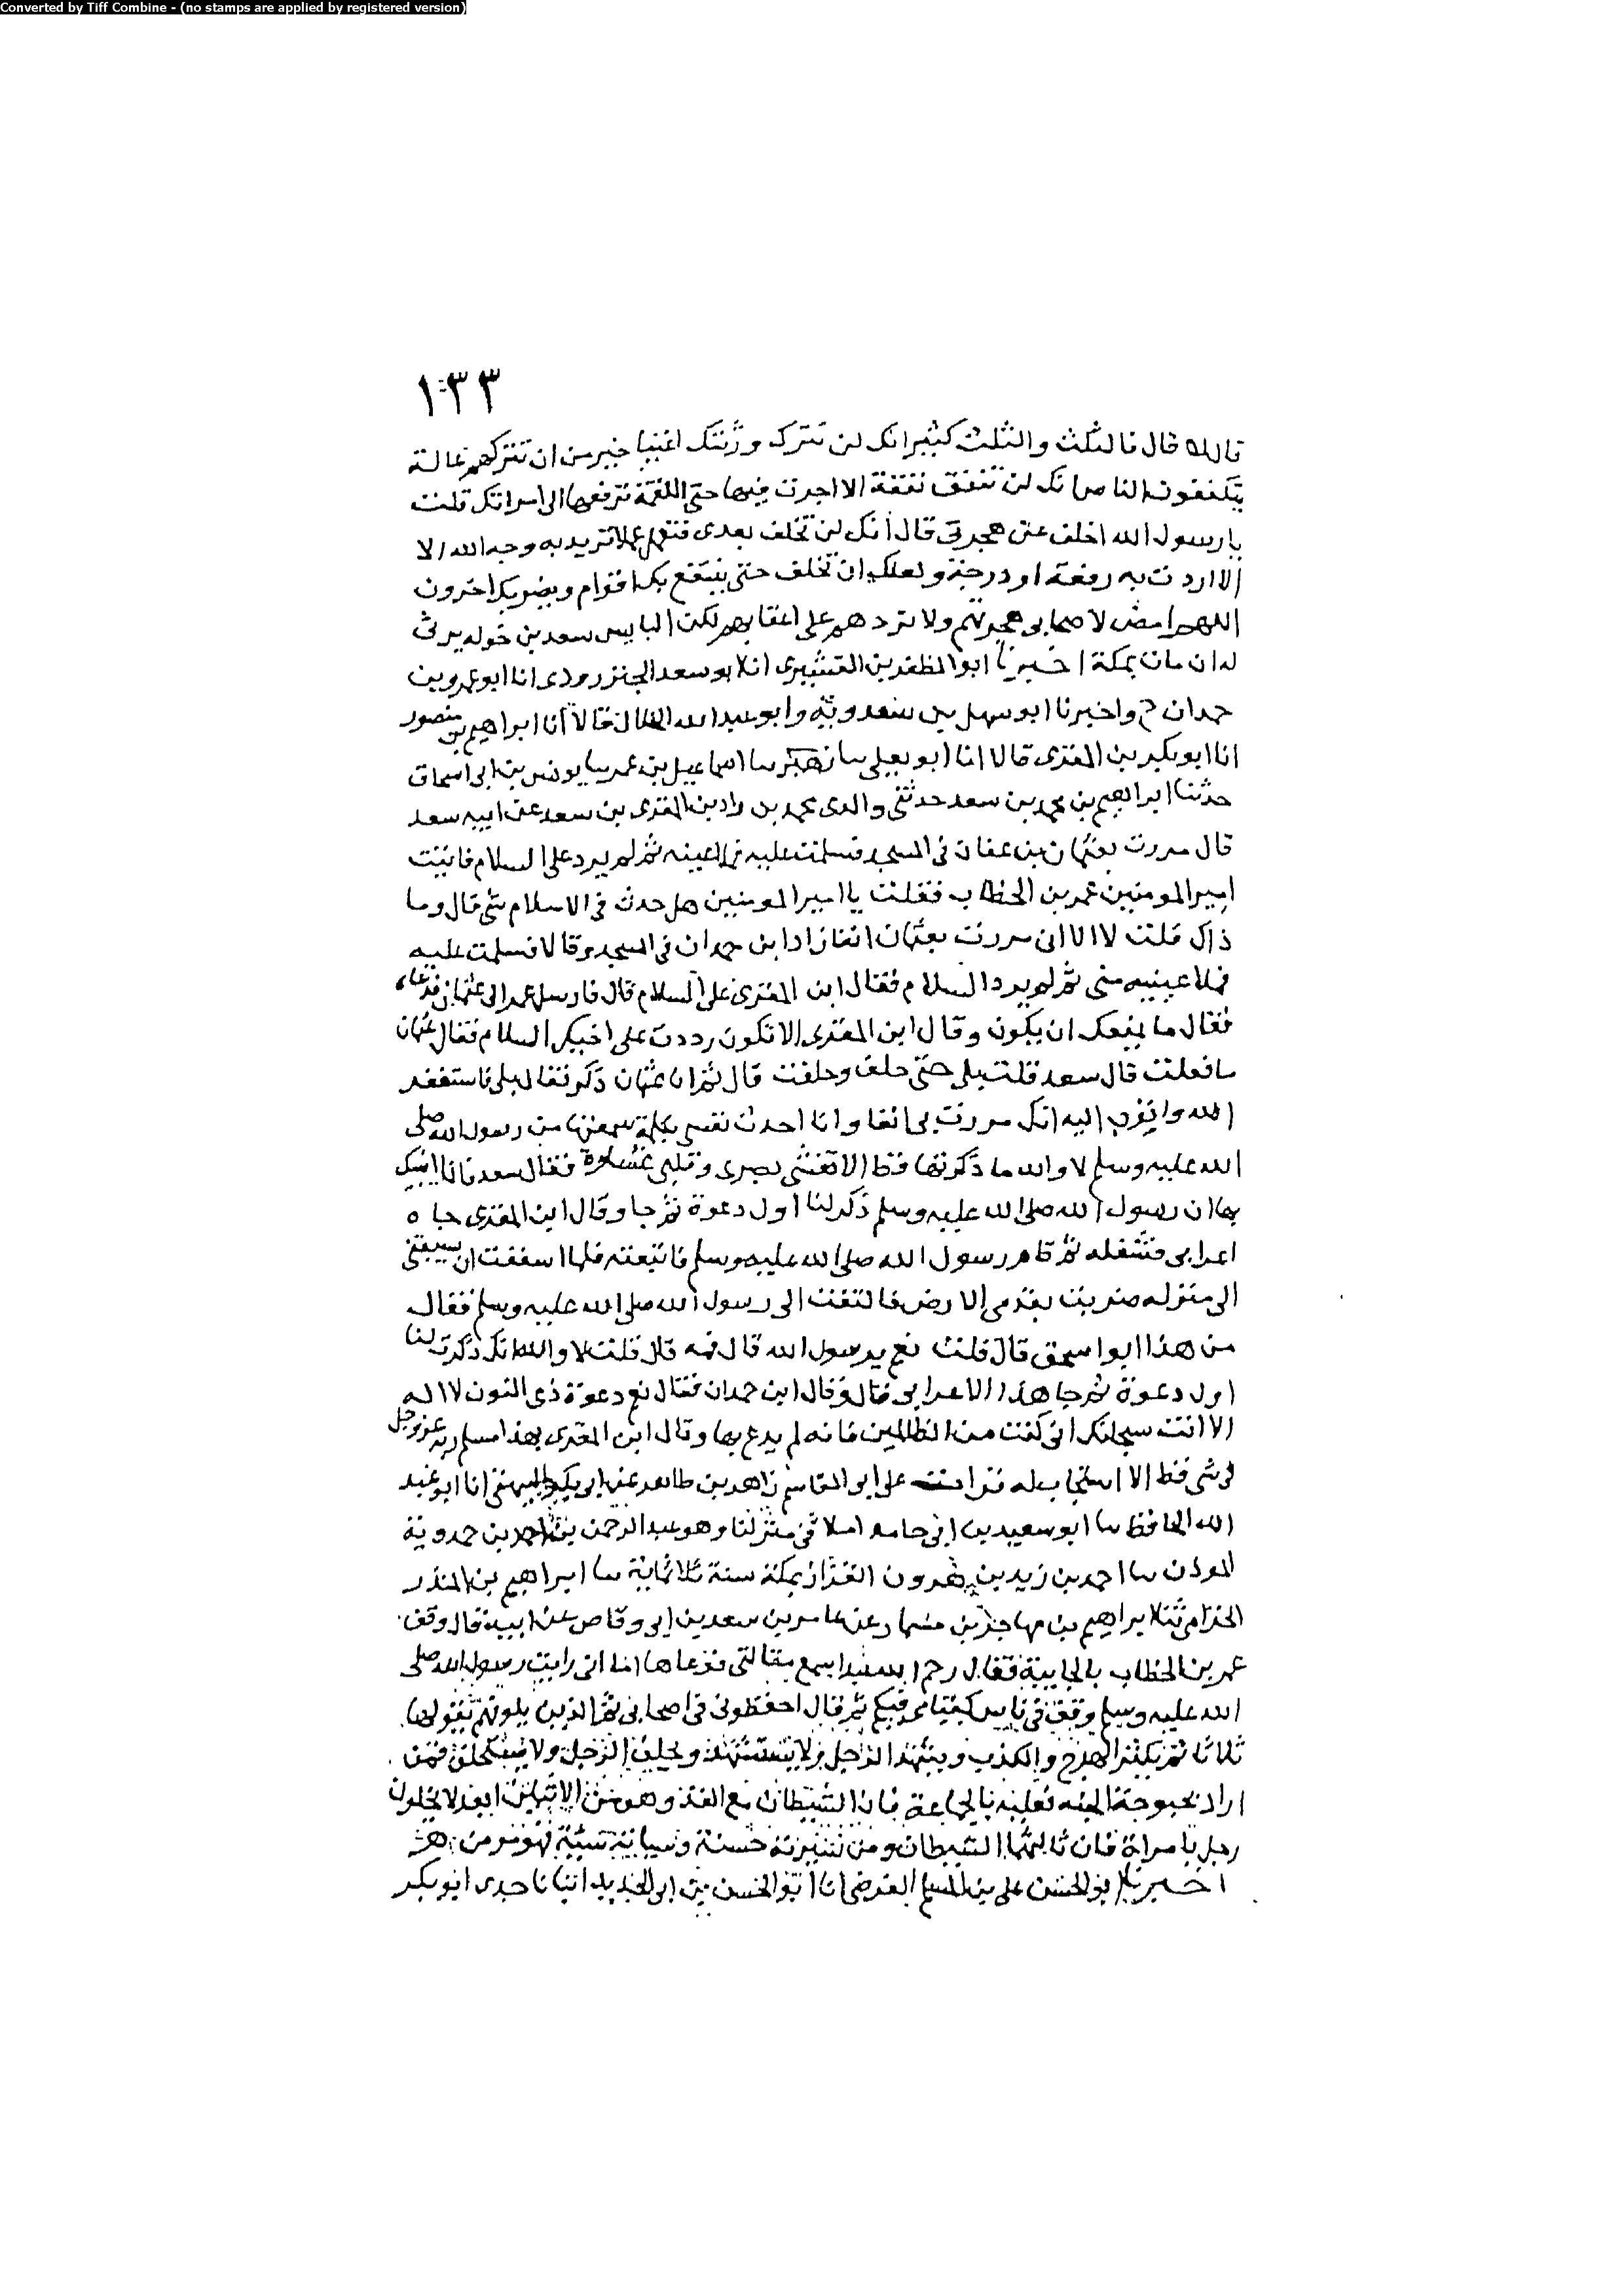 Converted by Tiff Combine - (no stamps are applied by registered version)
١٣٣
قال قال فالثلث والثلث كثير انك لن تترك ورثتك اغنيا خير من ان تتركهم عالة
يتكففون الناس انك لن تنفق نفقة الا اجرت فيها حتى اللقمة ترفعها الى امراتك قلت
يا رسول الله اخلف عن هجرتى قال انك لن تخلف بعدى فتعمل عملا تريد به وجه الله الا
الا اردت به رفعة او درجة ولعلك ان تخلف حتى ينتفع بك اقوام ويضر بك اخرون
اللهم امض لاصحابى هجرتهم ولا تردهم على اعقابهم لكن البايس سعد بن خوله يرثى
له ان مات بمكة اخبرنا ابو المظفر بن القشيرى انا ابو سعد الجنزرودى انا ابو عمرو بن
حمدان ح واخبرنا ابو سهل بن سعدويه وابو عبد الله الخلال قالا انا ابراهيم بن منصور
انا ابو بكر بن المقرى قالا انا ابو يعلى سا زهير سا اسماعيل بن عمر سا يونس بن ابى اسحاق
حدثنا ابراهيم بن محمد بن سعد حدثنى والدى محمد بن زاد بن المقرى بن سعد عن ابيه سعد
قال مررت بعثمان بن عفان فى المسجد فسلمت عليه فملا عينيه ثم لم يرد على السلام فاتيت
امير المومنين عمر بن الخطاب فقلت يا امير المومنين هل حدث فى الاسلام شى قال وما
ذاك قلت لا الا انى مررت بعثمان انفا زاد ابن حمدان فى المسجد وقالا فسلمت عليه
فملا عينيه منى ثم لم يرد السلام فقال ابن المقرى على السلام قال فارسل عمر الى عثمان فدعاه
فقال ما يمنعك ان يكون وقال ابن المقرى الا تكون رددت على اخيك السلام فقال عثمان
ما فعلت قال سعد قلت بلى حتى حلف وحلفت قال ثم ان عثمان ذكر فقال بلى فاستغفر
الله واتوب اليه انك مررت بى انفا وانا احدث نفسى بكلمة سمعتها من رسول الله صلى
الله عليه وسلم لا والله ما ذكرتها قط الا تغشى بصرى وقلبى غشاوة فقال سعد فانا انبيك
بها ان رسول الله صلى الله عليه وسلم ذكر لنا اول دعوة ثم جا وقال ابن المقرى جاه
اعرابى فشغله ثم قام رسول الله صلى الله عليه وسلم فاتبعته فلما اشفقت ان يسبقنى
الى منزله ضربت بقدمى الارض فالتفت الى رسول الله صلى الله عليه وسلم فقال
من هذا ابو اسحق قال قلت نعم يرسول الله قال فمه قال قلت لا والله انك ذكرت لنا
اول دعوة ثم جا هذا الاعرابى قال وقال ابن حمدان فقال نعم دعوة ذى النون لا اله
الا انت سبحانك انى كنت من الظالمين فانه لم يدع بها وقال ابن المقرى بهذا مسلم ربه عز وجل
فى شى قط الا استجاب له قرات على ابى القاسم زاهر بن طاهر عن ابى بكر البيهقى انا ابو عبد
الله الحافظ سا ابو سعيد بن ابى حامد املا فى منزلنا وهو عبد الرحمن بن احمد بن حمدوية
الموذن سا احمد بن زيد بن هرون القزاز بمكة سنة ثلاثماية سا ابراهيم بن المنذر
الحزامى ثنا ابراهيم بن مهاجر بن مسمار عن عامر بن سعد بن ابى وقاص عن ابيه قال وقف
عمر بن الخطاب بالجابية فقال رحم الله عبدا سمع مقالتى فوعاها اما انى رايت رسول الله صلى
الله عليه وسلم وقف فى ناس كقيامى فيكم ثم قال احفظونى فى اصحابى ثم الذين يلونهم يقولها
ثلاثا ثم يكثر الهرج والكذب ويشهد الرجل ولا يستشهد ويحلف الرجل ولا يستحلف فمن
اراد بحبوحة الجنه فعليه بالجماعة فان الشيطان مع الفذ وهو من الاثنين ابعد لا يخلون
رجل بامراة فان ثالثهما الشيطان ومن سرته حسنة وساته سيئة فهو مومن
اخبرنا ابو الحسن على بن المسلم الفرضى انا ابو الحسن بن ابى الحديد انبانا جدى ابو بكر